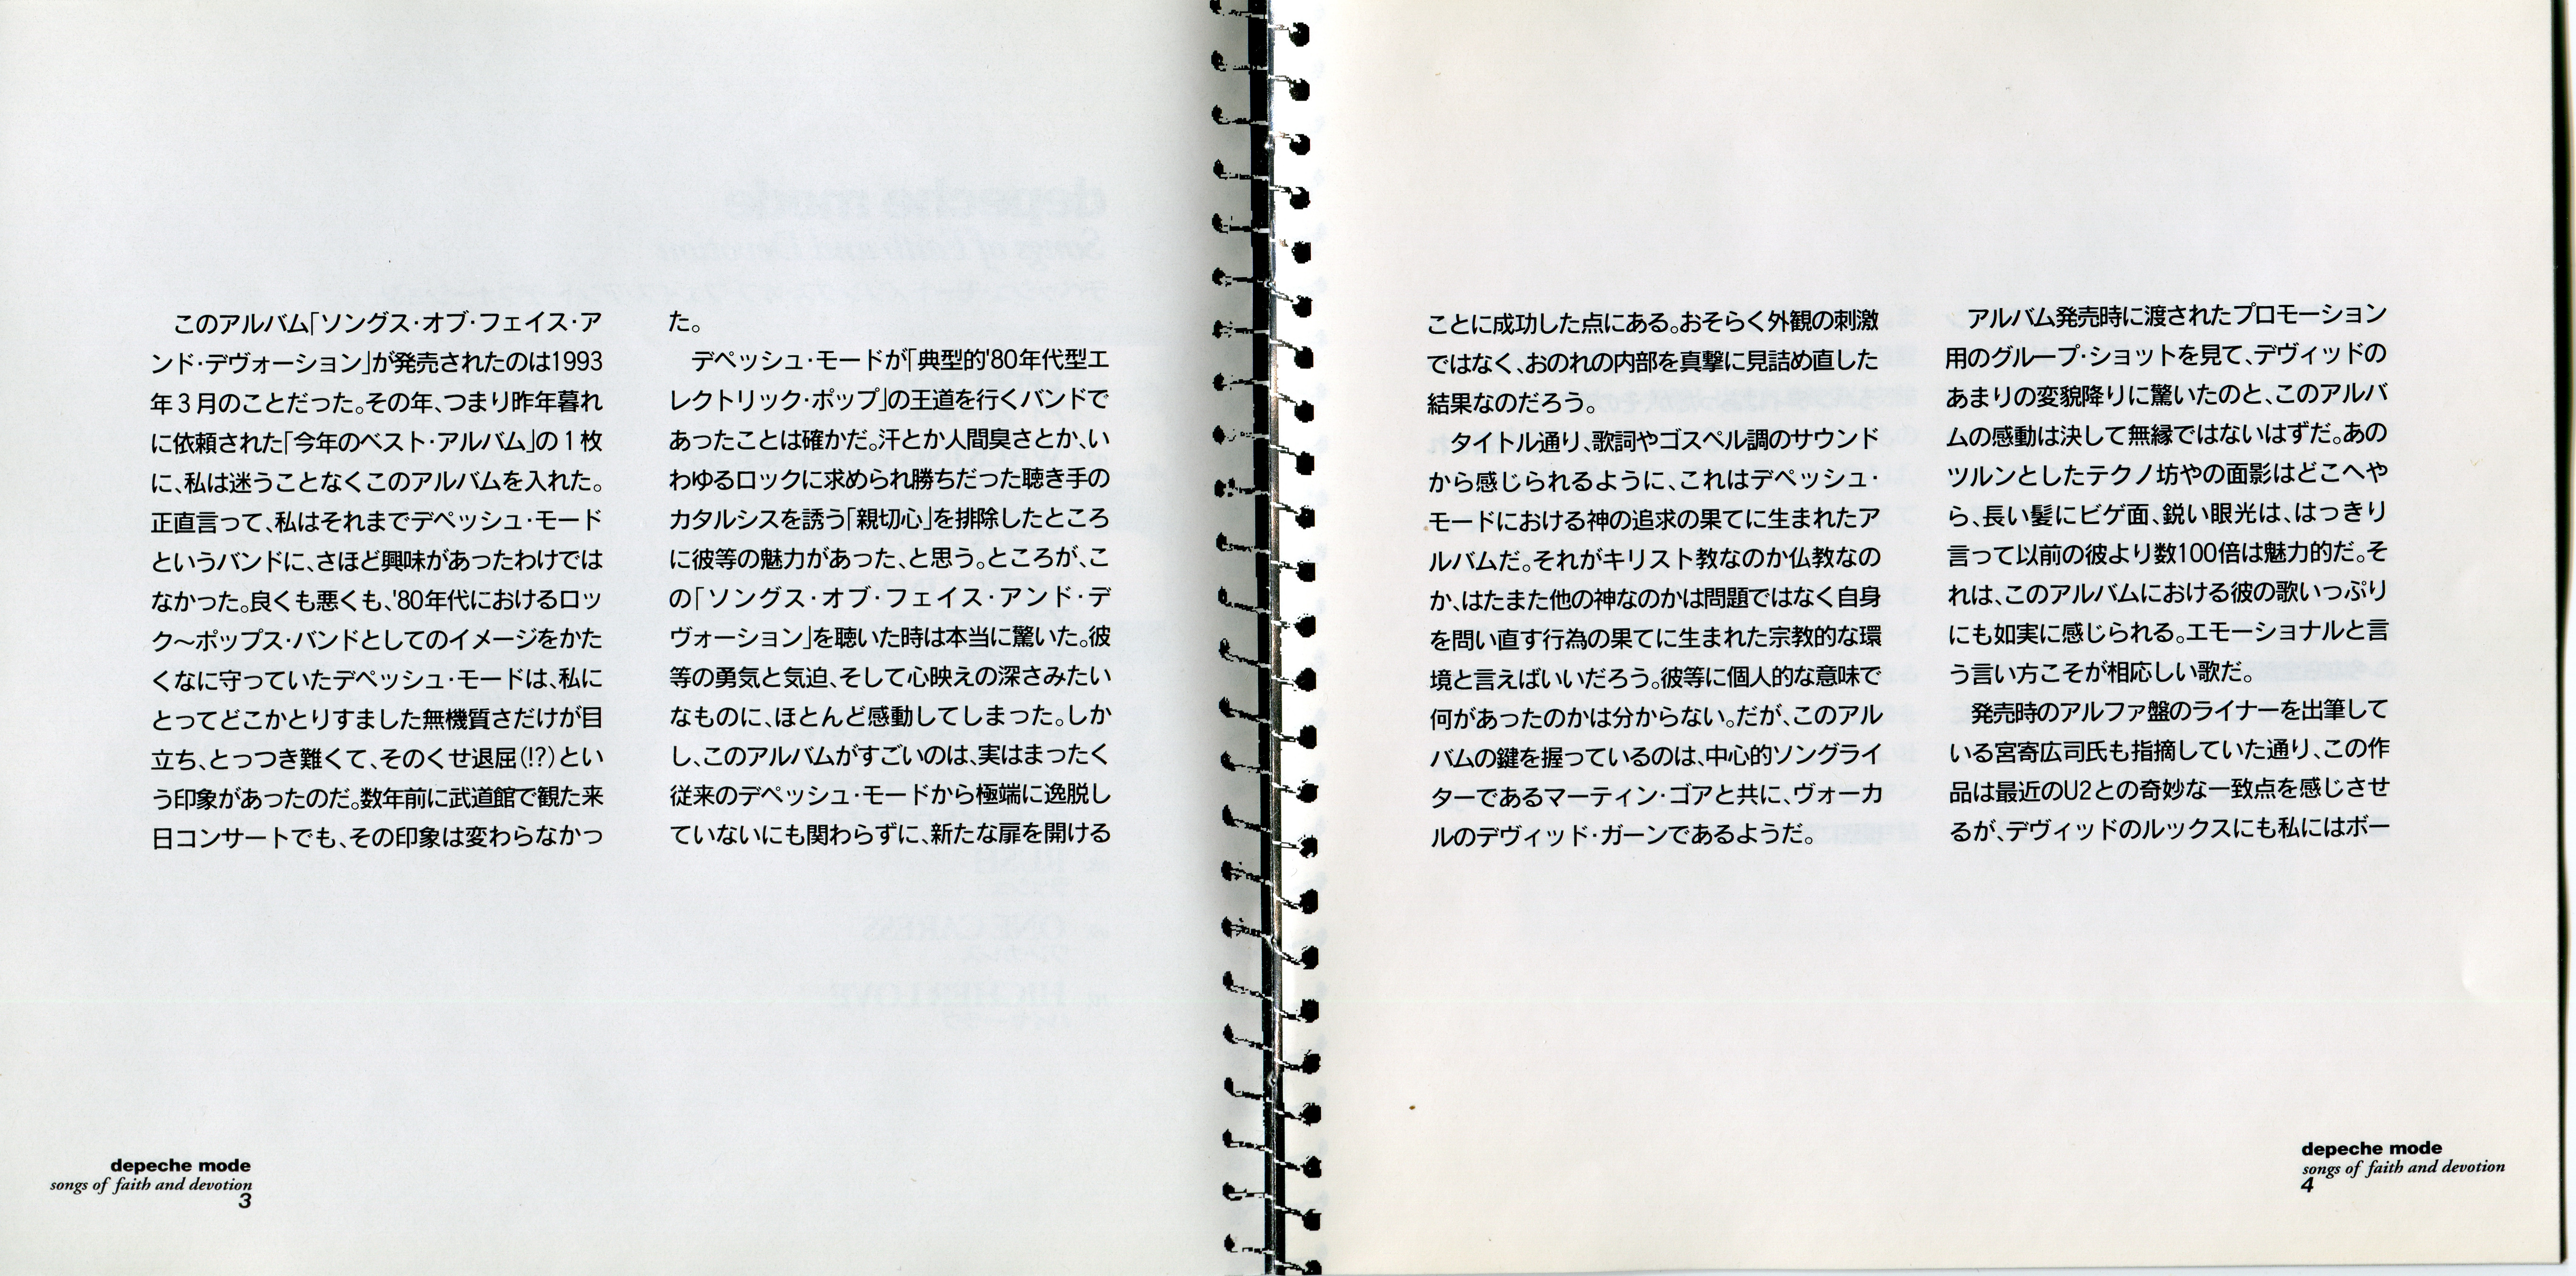 このアルバム「ソングス・オブ・フェイス・ア
ンド・デヴォーション」が発売されたのは1993
年3月のことだった。その年、つまり昨年暮れ
に依頼された「今年のベスト・アルバム」の1枚
に、私は迷うことなくこのアルバムを入れた。
正直言って、私はそれまでデペッシュ・モード
というバンドに、さほど興味があったわけでは
なかった。良くも悪くも、'80年代におけるロッ
ク〜ポップス・バンドとしてのイメージをかた
くなに守っていたデペッシュ・モードは、私に
とってどこかとりすました無機質さだけが目
立ち、とっつき難くて、そのくせ退屈(!?)とい
う印象があったのだ。数年前に武道館で観た来
日コンサートでも、その印象は変わらなかっ
た。
デペッシュ・モードが「典型的'80年代型エ
レクトリック・ポップ」の王道を行くバンドで
あったことは確かだ。汗とか人間臭さとか、い
わゆるロックに求められ勝ちだった聴き手の
カタルシスを誘う「親切心」を排除したところ
に彼等の魅力があった、と思う。ところが、こ
の「ソングス・オブ・フェイス・アンド・デ
ヴォーション」を聴いた時は本当に驚いた。彼
等の勇気と気迫、そして心映えの深さみたい
なものに、ほとんど感動してしまった。しか
し、このアルバムがすごいのは、実はまったく
従来のデペッシュ・モードから極端に逸脱し
ていないにも関わらずに、新たな扉を開ける
depeche mode
songs of faith and devotion
3
ことに成功した点にある。おそらく外観の刺激
ではなく、おのれの内部を真摯に見詰め直した
結果なのだろう。
タイトル通り、歌詞やゴスペル調のサウンド
から感じられるように、これはデペッシュ・
モードにおける神の追求の果てに生まれたア
ルバムだ。それがキリスト教なのか仏教なの
か、はたまた他の神なのかは問題ではなく自身
を問い直す行為の果てに生まれた宗教的な環
境と言えばいいだろう。彼等に個人的な意味で
何があったのかは分からない。だが、このアル
バムの鍵を握っているのは、中心的ソングライ
ターであるマーティン・ゴアと共に、ヴォーカ
ルのデヴィッド・ガーンであるようだ。
アルバム発売時に渡されたプロモーション
用のグループ・ショットを見て、デヴィッドの
あまりの変貌降りに驚いたのと、このアルバ
ムの感動は決して無縁ではないはずだ。あの
ツルンとしたテクノ坊やの面影はどこへや
ら、長い髪にヒゲ面、鋭い眼光は、はっきり
言って以前の彼より数100倍は魅力的だ。そ
れは、このアルバムにおける彼の歌いっぷり
にも如実に感じられる。エモーショナルと言
う言い方こそが相応しい歌だ。
発売時のアルファ盤のライナーを出筆して
いる宮寄広司氏も指摘していた通り、この作
品は最近のU2との奇妙な一致点を感じさせ
るが、デヴィッドのルックスにも私にはボー
depeche mode
songs of faith and devotion
4